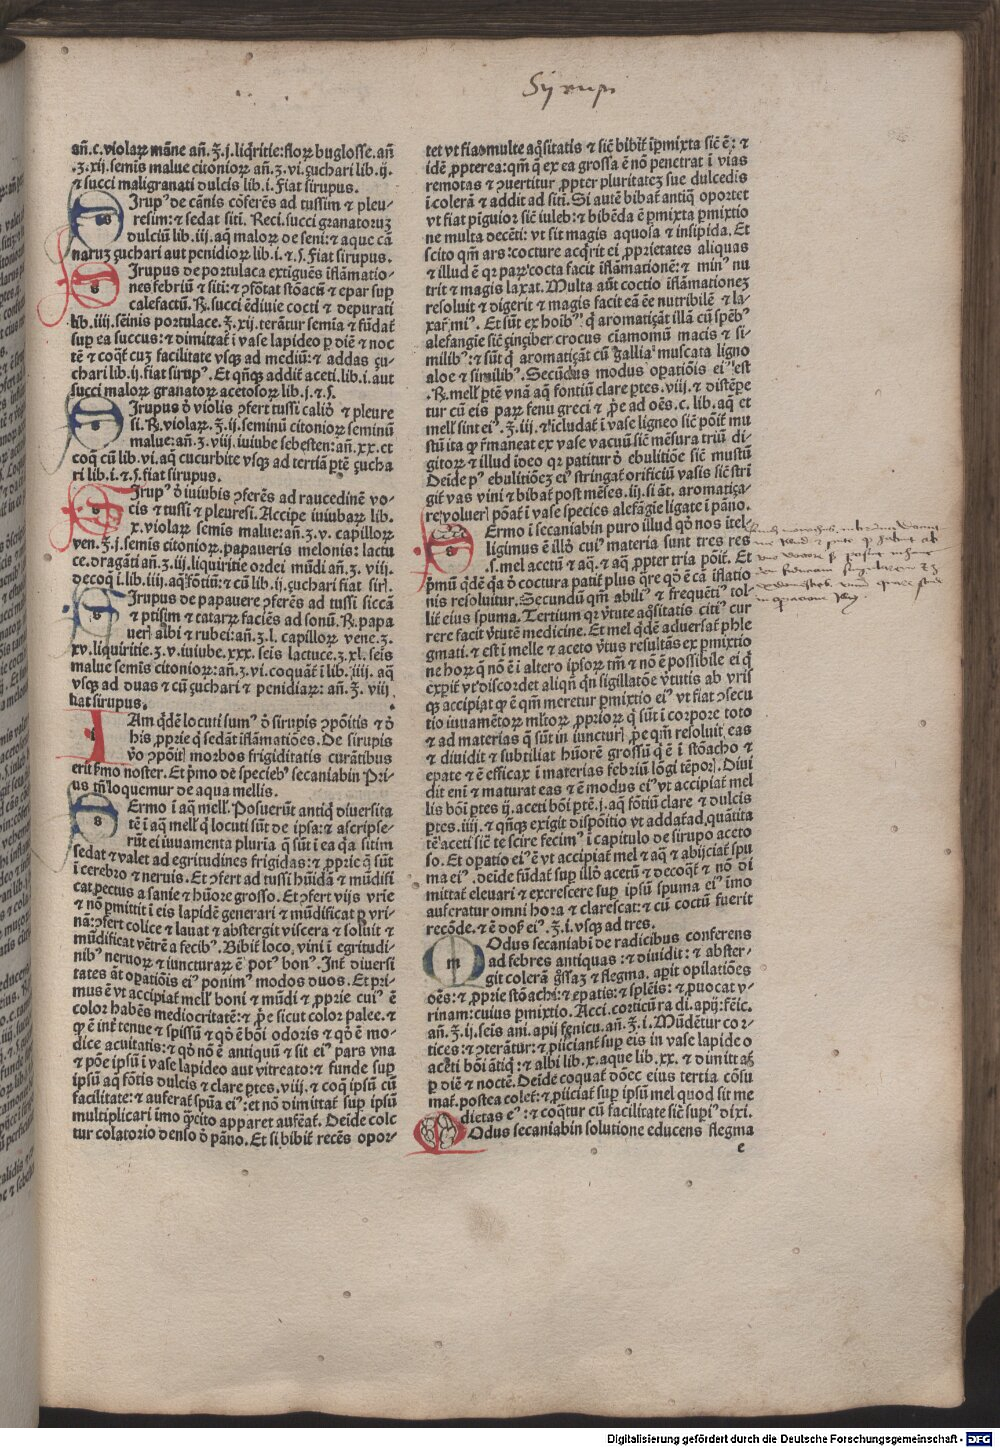 Syrupi
añ.c.violaꝝ mãne añ.℥.j.liq̃ritie:floꝝ buglosse.añ
.ʒ.xij.semĩs malue citonioꝝ añ.ʒ.vi.çuchari lib.ij.
⁊ succi maligranati dulcis lib.i.fiat sirupus.
Irupꝰ de cãnis cõferẽs ad tussim ⁊ pleu-
resim:⁊ sedat sitĩ. Reci.succi granatoruʒ
dulciũ lib.iij.aq̃ maloꝝ de seni:⁊ aque cã
naruʒ çuchari aut penidioꝝ lib.i.⁊.s. Fiat sirupus.
Irupus de portulaca extiguẽs ĩflãmatio-
nes febriũ ⁊ sitĩ:⁊ ꝯfõtat stõacũ ⁊ epar suꝑ
calefactũ. ℞.succi ẽdiuie cocti ⁊ depurati
lib.iiij.sẽinis portulace.℥.xij.terãtur semia ⁊ fũdat̃
suꝑ ea succus:⁊ dimittat̃ i vase lapideo ꝑ diẽ ⁊ noc
tẽ ⁊ coq̃t̃ cuʒ facilitate vsqʒ ad mediũ:⁊ addas çu-
chari lib.ij.fiat sirupꝰ. Et qñqʒ addit̃ aceti.lib.i.aut
succi maloꝝ granatoꝝ acetosoꝝ lib.j.⁊.s.
Irupus ð violis ꝯfert tussi calið ⁊ pleure
si.℞.violaꝝ.℥.ij.seminũ citonioꝝ seminũ
malue:añ.ʒ.viij.iuiube sebesten:añ.xx.et
coq̃ cũ lib.vi.aq̃ cucurbite vsqʒ ad tertiã ꝑtẽ çucha
ri lib.i.⁊.s.fiat sirupus.
Irupꝰ ð iuiubis ꝯferẽs ad raucedinẽ vo-
cis ⁊ tussi ⁊ pleuresi. Accipe iuiubaꝝ lib.
x.violaꝝ semis malue:añ.ʒ.v.capilloꝝ
ven.℥.j.semĩs citonioꝝ.papaueris melonis:lactu
ce.dragãti añ.ʒ.iij.liquiritie ordei mũdi añ.ʒ.viij.
decoq̃ i.lib.iiij.aq̃ fõtiũ:⁊ cũ lib.ij.çuchari fiat sir̃.
Irupus de papauere ꝯferẽs ad tussi siccã
⁊ ptisim ⁊ cataꝝ faciẽs ad sonũ.℞.papa
ueꝝ albi ⁊ rubei:añ.ʒ.l.capilloꝝ vene.ʒ.
xv.liquiritie.ʒ.v.iuiube.xxx.seis lactuce.ʒ.xl.seis
malue semĩs citonioꝝ:añ.ʒ.vi.coquãt̃ i lib.iiij.aq̃
vsqʒ ad duas ⁊ cũ çuchari ⁊ penidiaꝝ:añ.ʒ.viij
fiat sirupus.
Am q̃dẽ locuti sumꝰ ð sirupis ꝯpõitis ⁊ ð
his ꝓprie q̃ sedãt ĩflãmatiões. De sirupis
ṽo ꝯpõit̃ morbos frigiditatis curãtibus
erit p̃mo noster. Et p̃mo de speciebꝰ secaniabin Pri-
us tñ loquemur de aqua mellis.
Ermo ĩ aq̃ mell̃. Posuerũt antiq̃ diuersita
tẽ ĩ aq̃ mell̃ q̃ locuti sũt de ipsa:⁊ ascripse-
rũt ei iuuamenta pluria q̃ sũt i ea q̃a sitim
sedat ⁊ valet ad egritudines frigidas:⁊ ꝓprie q̃ sũt
ĩ cerebro ⁊ neruis. Et ꝯfert ad tussi hũidã ⁊ mũdifi
cat pectus a sanie ⁊ hũore grosso. Et ꝯfert vijs vrie
⁊ nõ ꝑmittit ĩ eis lapidẽ generari ⁊ mũdificat ꝑ vri-
nã:ꝯfert colice ⁊ lauat ⁊ abstergit viscera ⁊ soluit ⁊
mũdificat vẽtrẽ a fecibꝰ. Bibit̃ loco vini ĩ egritudi-
nibꝰ neruoꝝ ⁊ iuncturaꝝ ẽ potꝰ bonꝰ. Int̃ diuersi
tates ãt oꝑatiõis eiꝰ ponimꝰ modos duos. Et pri-
mus ẽ vt accipiat̃ mell̃ boni ⁊ mũdi ⁊ ꝓprie cuiꝰ ẽ
color habẽs mediocritatẽ:⁊ ꝓe sicut color palee.⁊
qꝫ ẽ int̃ tenue ⁊ spissũ ⁊ qð ẽ bõi odoris ⁊ qð ẽ mo-
dice acuitatis:⁊ qð nõ ẽ antiquũ ⁊ sit eiꝰ pars vna
⁊ põe ipsũ ĩ vase lapideo aut vitreato:⁊ funde suꝑ
ipsũ aq̃ fõtis dulcis ⁊ clare ꝑtes.viij.⁊ coq̃ ipsũ cũ
facilitate:⁊ auferat̃ spũa eiꝰ:et nõ dimittat̃ suꝑ ipsũ
multiplicari imo q̃cito apparet aufẽat̃. Deide colc
tur colatorio denso ð pãno. Et si bibit̃ recẽs opor-
tet vt fiat multe aq̃sitatis ⁊ sic̃ bibit̃ ĩꝑmixta sic̃ ẽ: ⁊
idẽ ꝓpterea:qm̃ q̃ ex ea grossa ẽ nõ penetrat ĩ vias
remotas ⁊ ꝯuertitur ꝓpter pluritateʒ sue dulcedis
ĩ colerã ⁊ addit ad siti. Si autẽ bibat̃ antiq̃ oportet
vt fiat pĩguior sic̃ iuleb:⁊ bibẽda ẽ ꝑmixta ꝑmixtio
ne multa decẽti: vt sit magis aquosa ⁊ insipida. Et
scito qm̃ ars:cocture acq̃rit ei ꝓprietates aliquas
⁊ illud ẽ qꝛ paꝝ cocta facit iflãmationẽ:⁊ minꝰ nu
trit ⁊ magis laxat. Multa aũt coctio iflãmationeʒ
resoluit ⁊ digerit ⁊ magis facit eã ẽe nutribilẽ ⁊ la-
xat̃ miꝰ. Et sũt ex hoibꝰ q̃ aromatiçãt illã cũ spẽbꝰ
alefangie sic̃ çinçiber crocus ciamomũ macis ⁊ si-
milibꝰ:⁊ sũt q̃ aromatiçãt cũ gallia muscata ligno
aloe ⁊ similibꝰ. Secũdus modus oꝑatiõis eiꝰ est
.℞.mell̃ ꝑtẽ vnã aq̃ fontiũ clare ꝑtes.viij.⁊ distẽpe
tur cũ eis paꝝ fenu greci ⁊ ꝓe ad oẽs.c.lib.aq̃ et
mell̃ sint eiꝰ.℥.iij.⁊ icludat̃ i vase ligneo sic̃ põit̃ mu
stũ ita qꝫ r̃maneat ex vase vacuũ sic̃ mẽsura triũ di-
gitoꝝ ⁊ illud ideo qꝛ patitur ð ebulitiõe sic̃ mustũ
Deide pꝰ ebulitiõeʒ eiꝰ stringat̃ orificiũ vasis sic̃ stri
git̃ vas vini ⁊ bibat̃ post mẽses.iij.si ãt. aromatiça-
re voluer̃ põat̃ i vase species alefãgie ligate i pãno.
Ermo ĩ secaniabin puro illud qð nos itel-
ligimus ẽ illð cuiꝰ materia sunt tres res
.s.mel acetũ ⁊ aq̃.⁊ aq̃ ꝓpter tria põit̃. Et
p̃mũ q̃dẽ q̃a ð coctura patit̃ plus q̃re qð ẽ cã iflatio
nis resoluitur. Secundũ qm̃ abiliꝰ ⁊ frequẽtiꝰ tol-
lit̃ eius spuma. Tertium qꝛ ṽtute aq̃sitatis citiꝰ cur
rere facit ṽtutẽ medicine. Et mel q̃dẽ aduersat̃ phle
gmati.⁊ est i melle ⁊ aceto ṽtus resultãs ex ꝑmixtio
ne hoꝝ q̃ nõ ẽ i altero ipsoꝝ tm̃ ⁊ nõ ẽ possibile ei q̃
exꝑit̃ vt discordet aliqñ q̃n sigillatõe ṽtutis ab vris
qʒ accipiat̃ qꝫ ẽ qm̃ meretur ꝑmixtio eiꝰ vt fiat ꝯsecu
tio iuuamẽtoꝝ ml̃toꝝ ꝓprioꝝ q̃ sũt i corpore toto
⁊ ad materias q̃ sũt in iunctur̃ ꝓe qm̃ resoluit eas
⁊ diuidit ⁊ subtiliat hũorẽ grossũ q̃ ẽ i stõacho ⁊
epate ⁊ ẽ efficax ĩ materias febriũ lõgi tẽpor̃. Diui
dit eni ⁊ maturat eas ⁊ ẽ modus eiꝰ vt accipiat̃ mel
lis bõi ꝑtes ij.aceti bõi ꝑtẽ.j.aq̃ fõtiũ clare ⁊ dulcis
ꝑtes.iiij.⁊ qñqʒ exigit dispõitio vt addat̃ ad quãtita
tẽ aceti sic̃ te scire fecimꝰ i capitulo de sirupo aceto
so. Et oꝑatio eiꝰ ẽ vt accipiat̃ mel ⁊ aq̃ ⁊ abijciat̃ spu
ma eiꝰ.deide fũdat̃ suꝑ illð acetũ ⁊ decoq̃t̃ ⁊ nõ di
mittat̃ eleuari ⁊ excrescere suꝑ ipsũ spuma eiꝰ ĩmo
auferatur omni hora ⁊ clarescat:⁊ cũ coctũ fuerit
recõde.⁊ ẽ dos̃ eiꝰ.℥.i.vsqʒ ad tres.
Odus secaniabĩ de radicibus conferens
ad febres antiquas:⁊ diuidit:⁊ abster-
git colerã gr̃ssaʒ ⁊ flegma. aꝑit opilatiões
oẽs:⁊ ꝓprie stõachi:⁊ epatis:⁊ splẽis:⁊ ꝓuocat v-
rinam:cuius ꝑmixtio. Acci.corticũ ra di.apij:fẽic.
añ.℥.ij.seis ani.apij feniculi.añ.℥.i. Mũdẽtur cor-
tices:⁊ ꝯterãtur:⁊ ꝓijciant̃ suꝑ eis in vase lapide o
aceti bõi ãtiq̃:⁊ albi lib.x.aque lib.xx.⁊ dimittaʒ
ꝑ diẽ ⁊ noctẽ. Deide coquat̃ dõec eius tertia cõsu
mat̃.postea colet̃:⁊ ꝓijciat̃ suꝑ ipsũ mel quod sit me
dietas eiꝰ:⁊ coq̃tur cũ facilitate sic̃ supiꝰ dixi.
Odus secaniabin solutione educens flegma
e
Digitalisierung gefördert durch die Deutsche Forschungsgemeinschaft - DFG